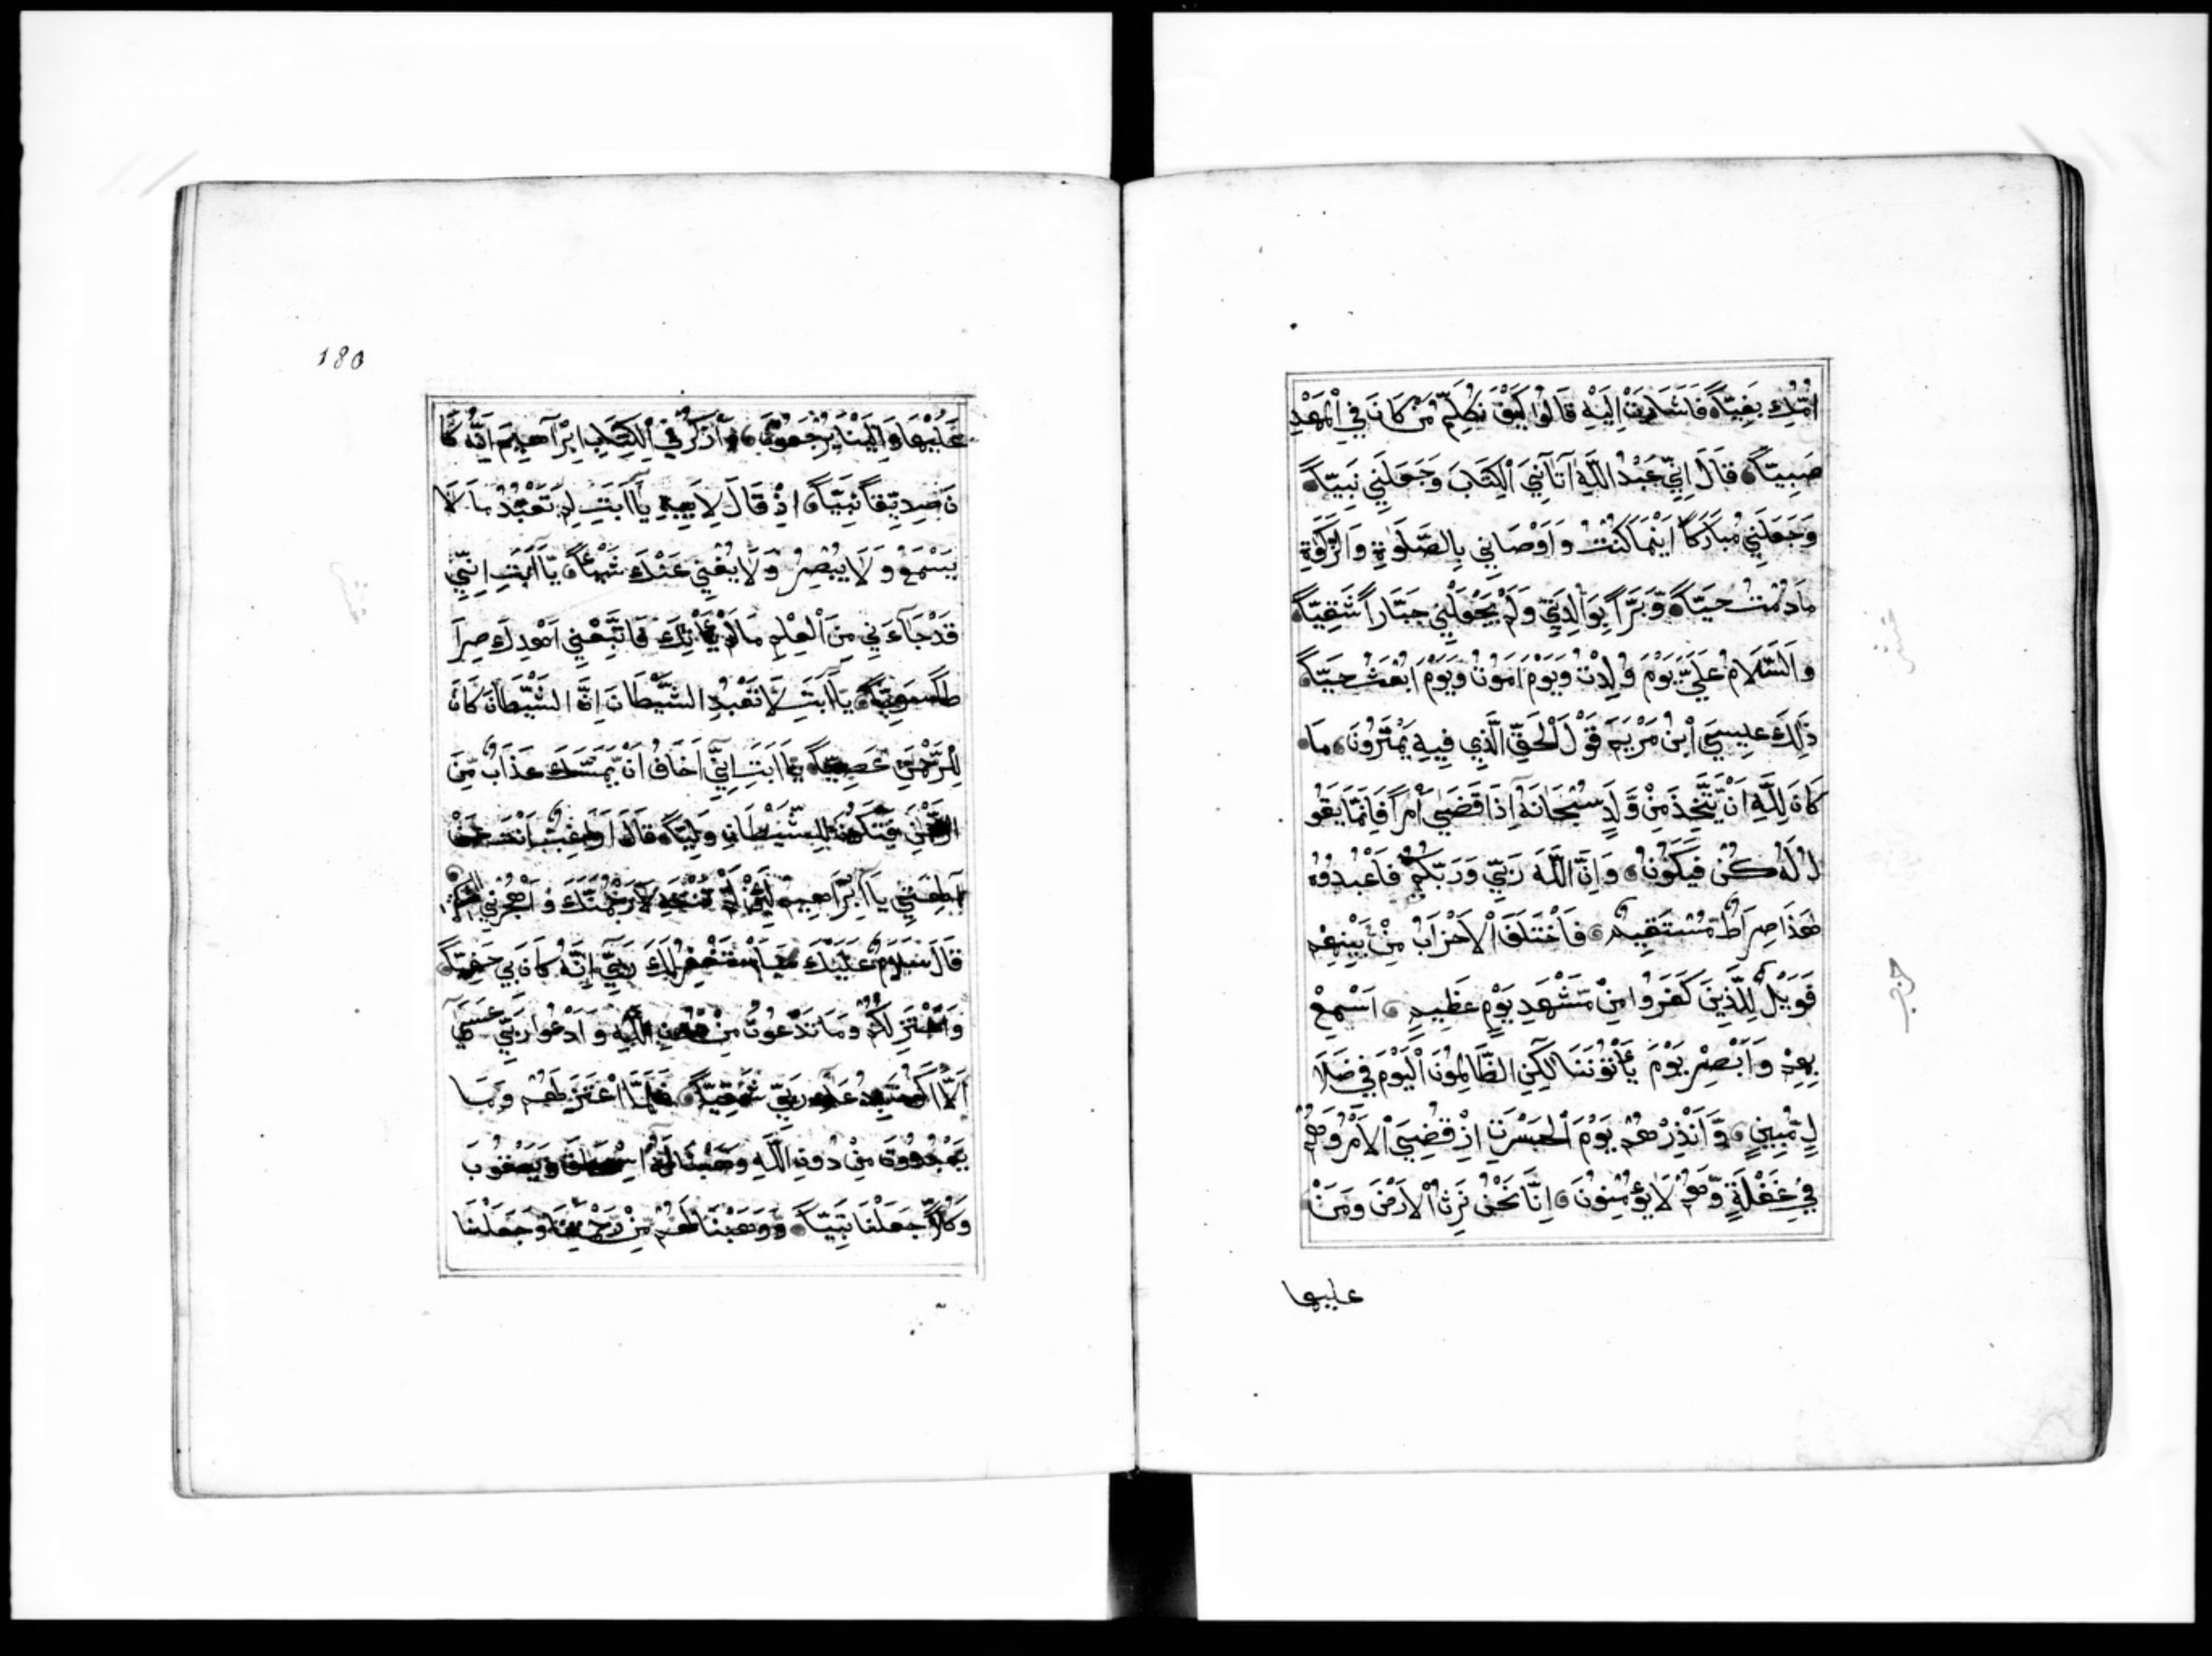 اُمُّكِ بَغِيّاً فَاَشَارَتْ اِلَيْهِ قَالُوا كَيْفَ نُكَلِّمُ مَنْ كَانَ فِي الْمَهْدِ
صَبِيّاً قَالَ اِنِّي عَبْدُ اللَّهِ آتَانِيَ الْكِتَابَ وَجَعَلَنِي نَبِيّاً
وَجَعَلَنِي مُبَارَكاً اَيْنَمَا كُنْتُ وَاَوْصَانِي بِالصَّلَوٰةِ وَالزَّكَوٰةِ
مَادُمْتُ حَيّاً وَّبَرّاً بِوَالِدَتِي وَلَمْ يَجْعَلْنِي جَبَّاراً شَقِيّاً
وَالسَّلَامُ عَلَيَّ يَوْمَ وُلِدْتُ وَيَوْمَ اَمُوْتُ وَيَوْمَ اُبْعَثُ حَيّاً
ذٰلِكَ عِيسَي ابْنُ مَرْيَمَ قَوْلَ الْحَقِّ الَّذِي فِيهِ يَمْتَرُونَ مَا
كَانَ لِلَّهِ اَنْ يَّتَّخِذَ مِنْ وَّلَدٍ سُبْحَانَهُ اِذَا قَضَي اَمْراً فَاِنَّمَا يَقُو
لُ لَهُ كُنْ فَيَكُوْنُ وَاِنَّ اللَّهَ رَبِّي وَرَبُّكُمْ فَاعْبُدُوْهُ
هَذَا صِرَاطٌ مُّسْتَقِيمٌ فَاخْتَلَفَ الْاَحْزَابُ مِنْ بَيْنِهِمْ
فَوَيْلٌ لِّلَّذِينَ كَفَرُوا مِنْ مَّشْهَدِ يَوْمٍ عَظِيمٍ اَسْمِعْ
بِهِمْ وَاَبْصِرْ يَوْمَ يَأْتُوْنَنَا لَكِنِ الظَّالِمُونَ الْيَوْمَ فِي ضَلَا
لٍ مُّبِينٍ وَّاَنْذِرْهُمْ يَوْمَ الْحَسْرَتِ اِذْ قُضِيَ الْاَمْرُ وَهُمْ
فِي غَفْلَةٍ وَّهُمْ لَا يُؤْمِنُوْنَ اِنَّا نَحْنُ نَرِثُ الْاَرْضَ وَمَنْ
عليها
180
عَلَيْهَا وَاِلَيْنَا يُرْجَعُوْنَ وَاذْكُرْ فِي الْكِتَابِ اِبْرَاهِيمَ اِنَّهُ كَا
نَ صِدِّيقاً نَّبِيّاً اِذْ قَالَ لِاَبِيهِ يَا اَبَتِ لِمَ تَعْبُدُ مَا لَا
يَسْمَعُ وَلَا يُبْصِرُ وَلَا يُغْنِي عَنْكَ شَيْئاً يَا اَبَتِ اِنِّي
قَدْ جَآءَنِي مِنَ الْعِلْمِ مَا لَمْ يَأْتِكَ فَاتَّبِعْنِي اَهْدِكَ صِرَا
طاً سَوِيّاً يَا اَبَتِ لَا تَعْبُدِ الشَّيْطَانَ اِنَّ الشَّيْطَانَ كَانَ
لِلرَّحْمٰنِ عَصِيّاً يَا اَبَتِ اِنِّي اَخَافُ اَنْ يَّمَسَّكَ عَذَابٌ مِّنَ
الرَّحْمٰنِ فَتَكُوْنَ لِلشَّيْطَانِ وَلِيّاً قَالَ اَرَاغِبٌ اَنْتَ عَنْ
اٰلِهَتِي يَا اِبْرَاهِيمُ لَئِنْ لَّمْ تَنْتَهِ لَاَرْجُمَنَّكَ وَاهْجُرْنِي
قَالَ سَلَامٌ عَلَيْكَ سَاَسْتَغْفِرُ لَكَ رَبِّي اِنَّهُ كَانَ بِي حَفِيّاً
وَاَعْتَزِلُكُمْ وَمَا تَدْعُوْنَ مِنْ دُوْنِ اللَّهِ وَاَدْعُوا رَبِّي عَسَي
اَلَّا اَكُوْنَ بِدُعَآءِ رَبِّي شَقِيّاً فَلَمَّا اعْتَزَلَهُمْ وَمَا
يَعْبُدُوْنَ مِنْ دُوْنِ اللَّهِ وَهَبْنَا لَهُ اِسْحٰقَ وَيَعْقُوْبَ
وَكُلّاً جَعَلْنَا نَبِيّاً وَوَهَبْنَا لَهُمْ مِّنْ رَّحْمَتِنَا وَجَعَلْنَا